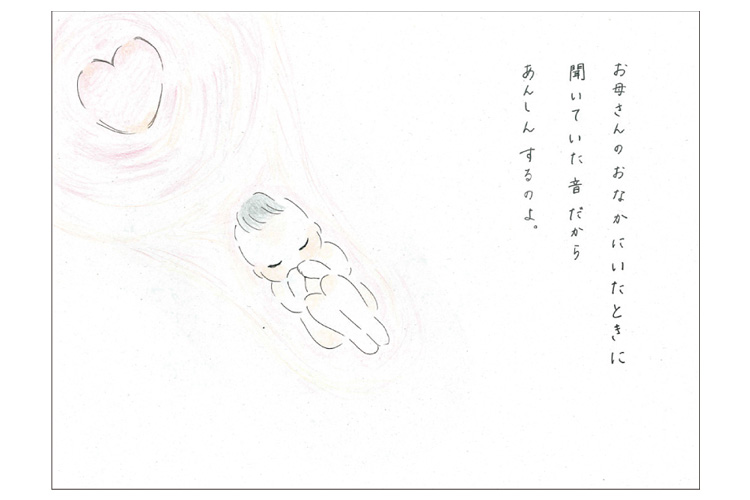 お母さんのおなかにいたときに
聞いていた音だから
あんしんするのよ。